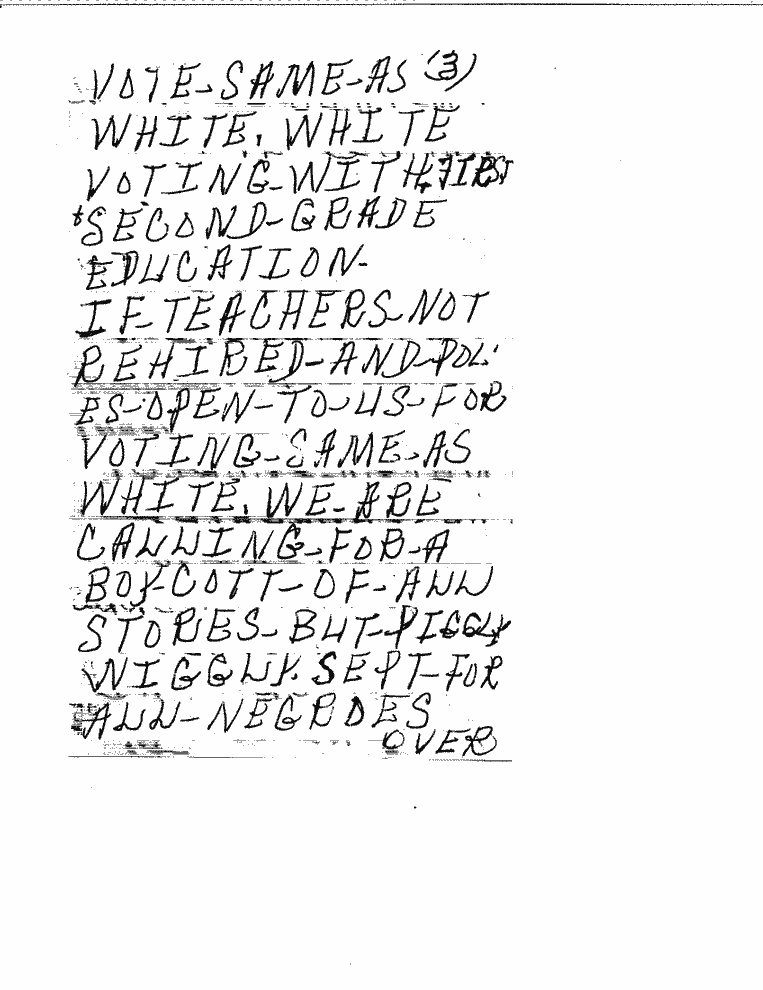 VOTE-SAME-AS (3)
WHITE. WHITE
VOTING-WITH FIRST
*SECOND-GRADE
EDUCATION-
IF-TEACHERS-NOT
REHIRED-AND-POL-
ES-OPEN-TO-US-FOR
VOTING-SAME-AS
WHITE. WE-ARE
CALLING-FOR-A
BOYCOTT-OF-ALL
STORES-BUT-PIGGLY
WIGGLY. SEPT-FOR
ALL-NEGROES
OVER